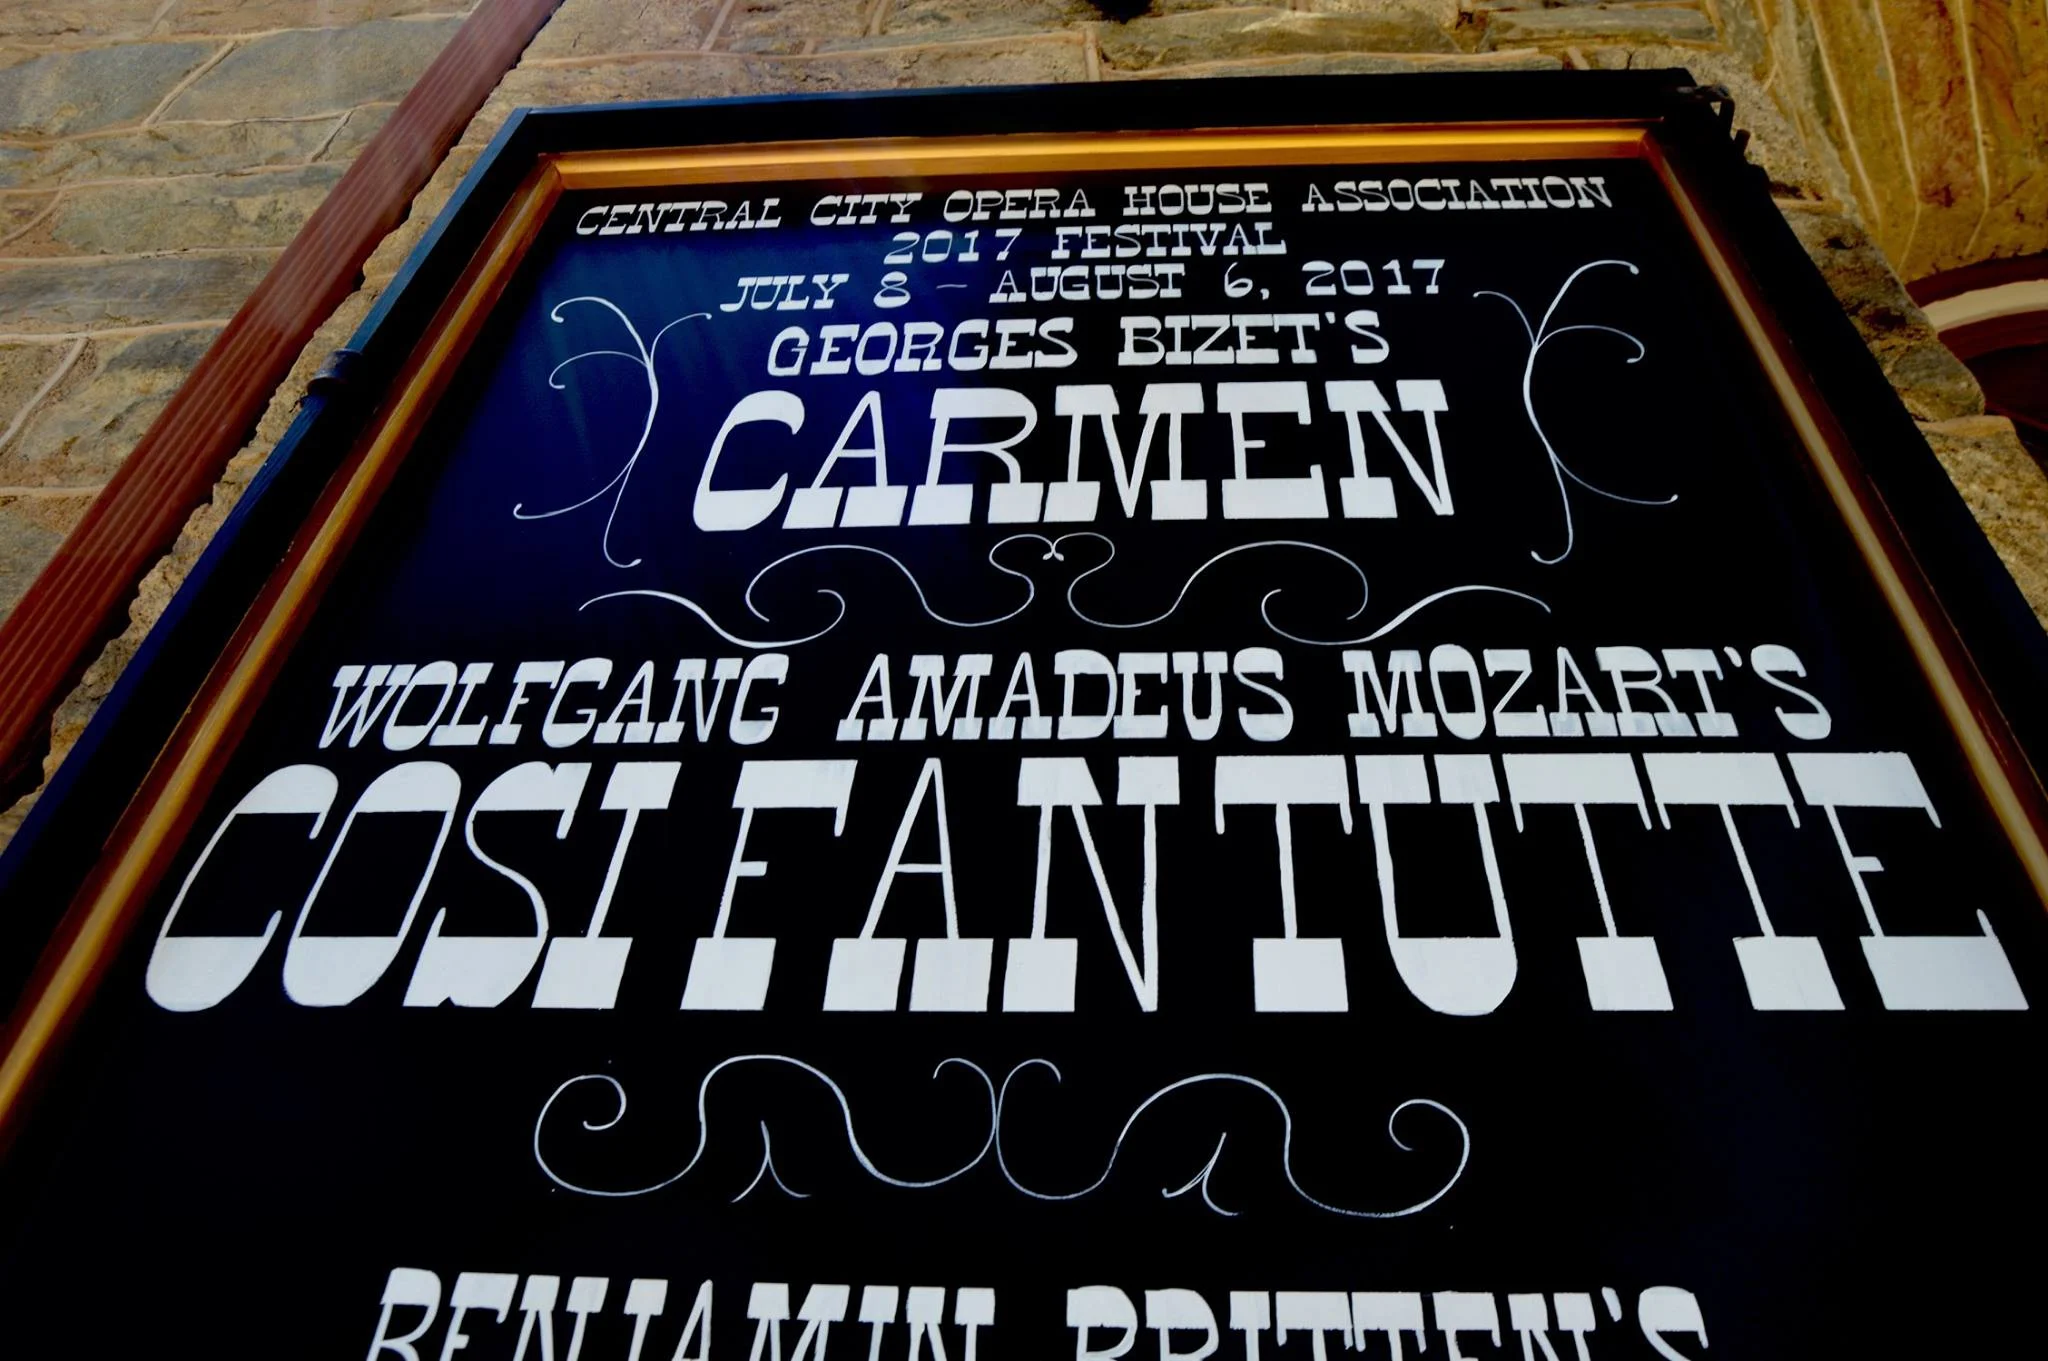 CENTRAL CITY OPERA HOUSE ASSOCIATION
2017 FESTIVAL
JULY 8 - AUGUST 6, 2017
GEORGES BIZET'S
CARMEN
WOLFGANG AMADEUS MOZART'S
COSI FAN TUTTE
BENJAMIN BRITTEN'S